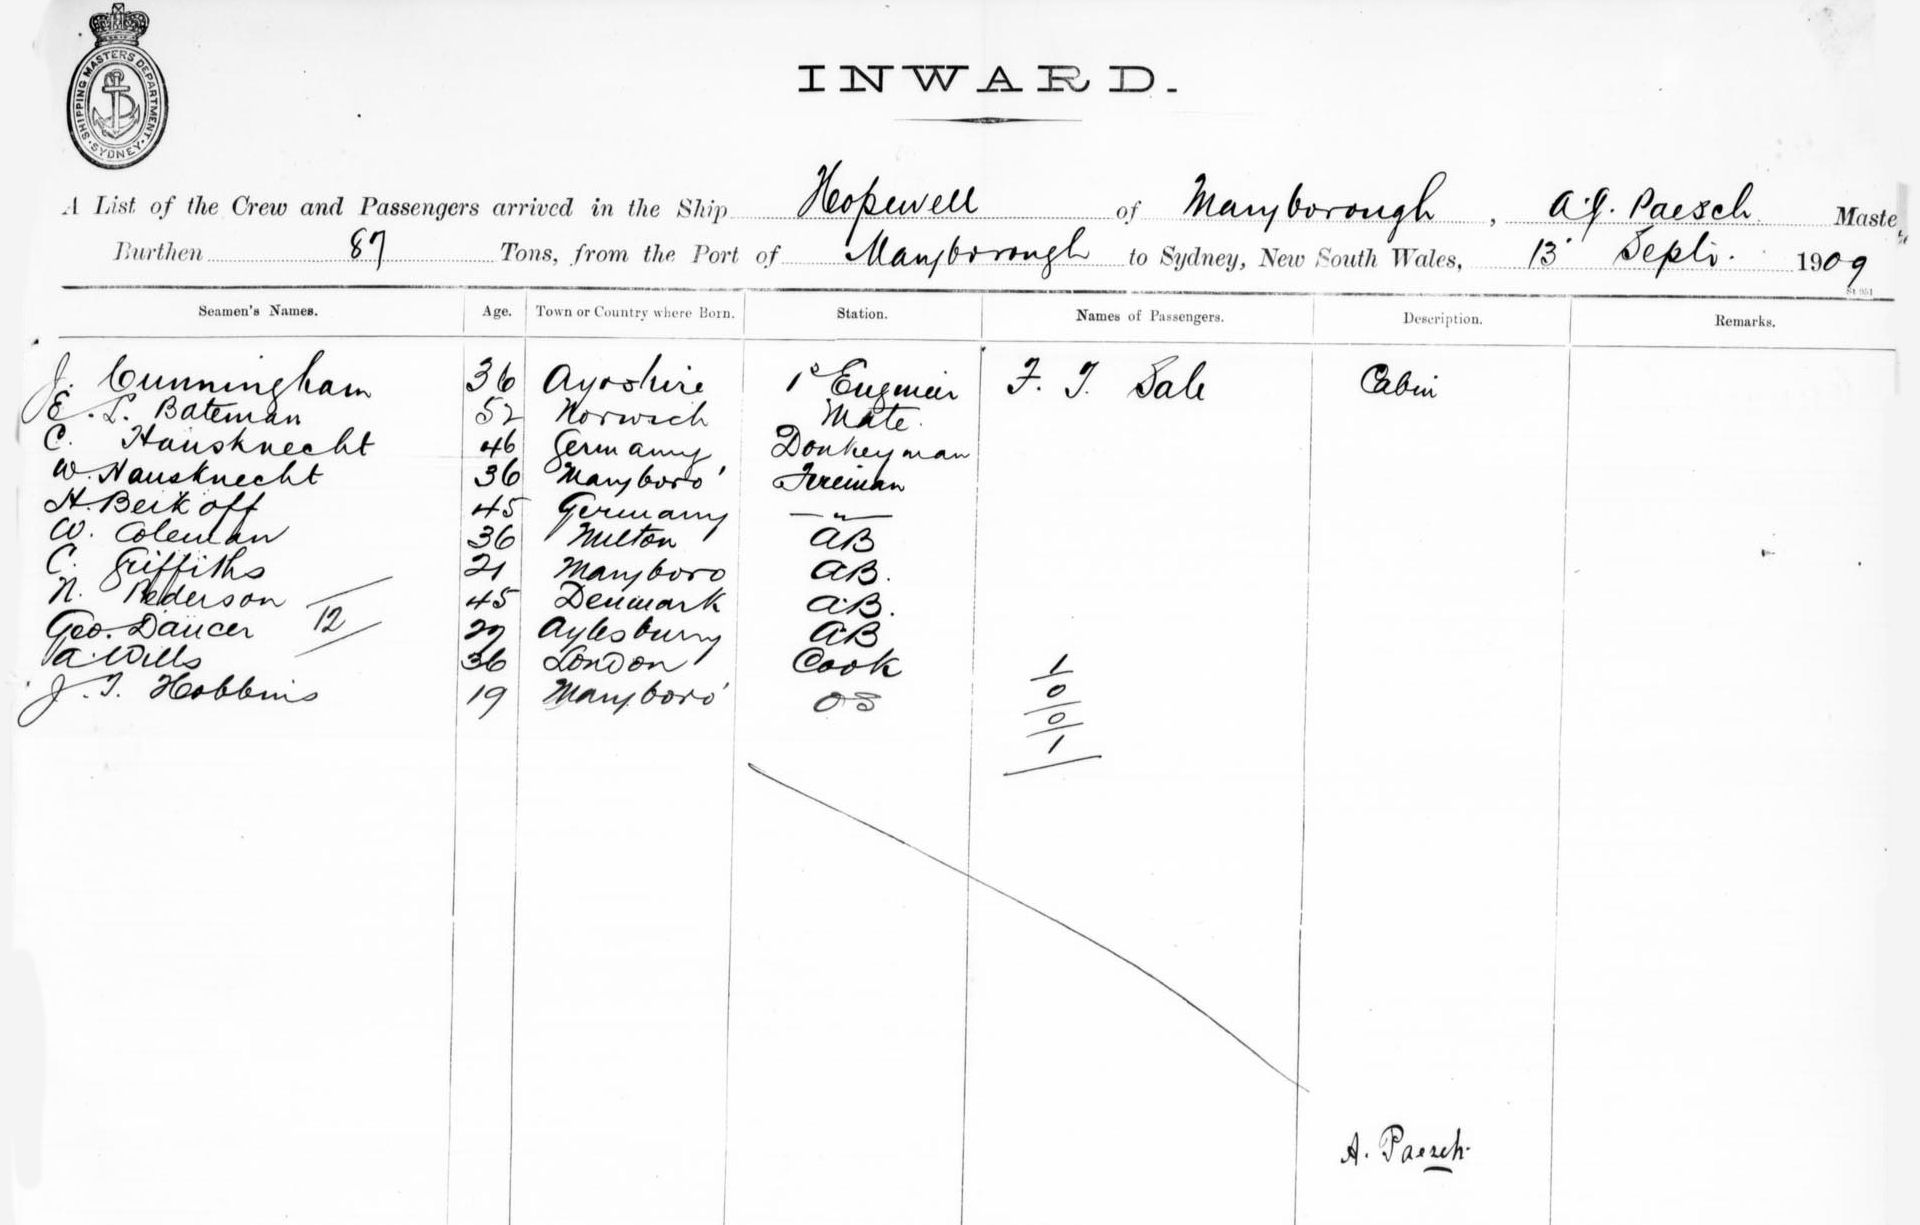 SHIPPING MASTERS DEPARTMENT
SYDNEY
INWARD.
A List of the Crew and Passengers arrived in the Ship Hopewell of Maryborough, A.G. Paesch Maste
Burthen 87 Tons, from the Port of Maryborough to Sydney, New South Wales, 13 Sept. 1909
Seamen's Names. Age. Town or Country where Born. Station. Names of Passengers. Description. Remarks.
J. Cunningham 36 Ayrshire 1s Engineer F. T. Sale Cabin
E. L. Bateman 52 Norwich Mate.
C. Hausknecht 46 Germany Donkeyman
W. Hausknecht 36 Maryboro' Fireman
H. Beikoff 45 Germany — " —
W. Coleman 36 Milton AB
C. Griffiths 21 Maryboro AB.
N. Pederson 45 Denmark A.B.
12
Geo. Dancer Aylesbury AB
A. Wills 36 London Cook
J. T. Hobbins 19 Maryboro' OS
1
0
0
1
A. Paesch.